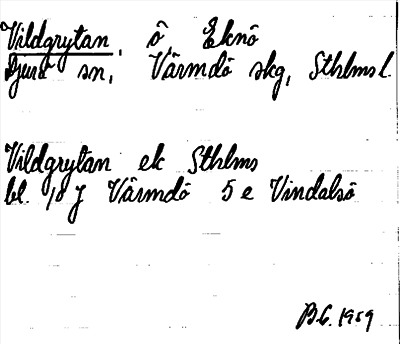 Vildgrytan, ö Eknö
Djurö sn, Värmdö skg, Sthlms l.
Vildgrytan ek Sthlms
bl. 10 J Värmdö 5 e Vindalsö
B.G. 1959